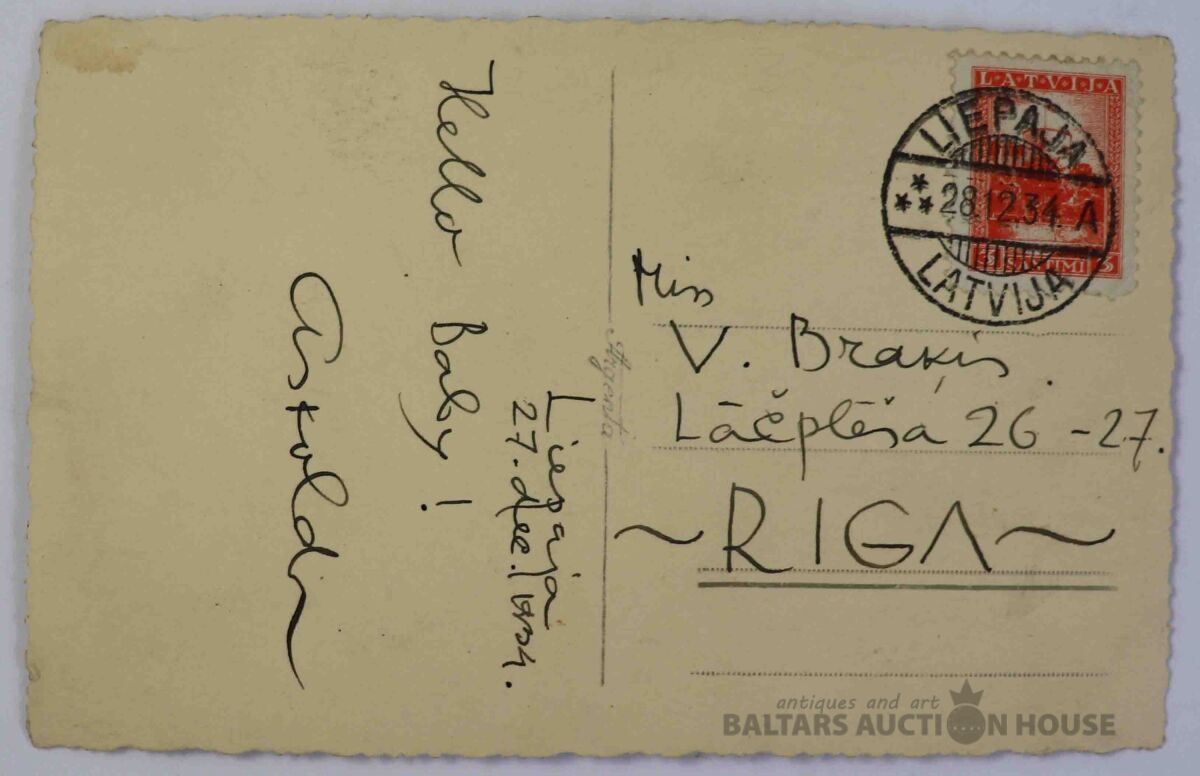 Liepajā
27. dec. 1934.
Hello Baby!
LATVIJA
3 SANTIMI 3
LIEPAJA
28.12.34. A
LATVIJA
Miss
V. Braķis.
Lāčplēša 26-27.
~RIGA~
antiques and art
BALTARS AUCTION HOUSE